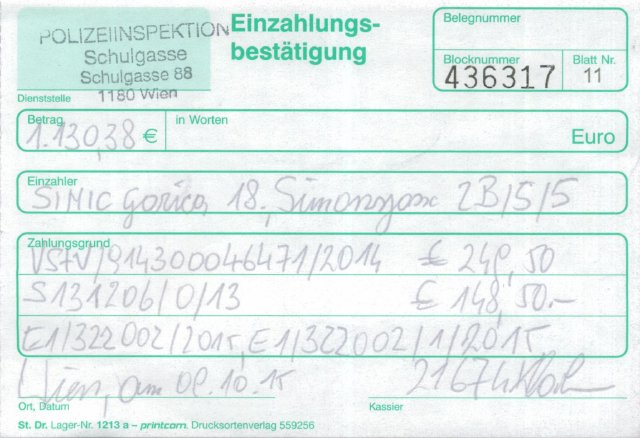 POLIZEIINSPEKTION
Schulgasse
Schulgasse 88
1180 Wien
Dienststelle
Einzahlungs-
bestätigung
Belegnummer
Blocknummer
436317
Blatt Nr.
11
Betrag
1.130,38 €
in Worten
Euro
Einzahler
SIMIC Gorica, 18., Simonygasse 2B/5/5
Zahlungsgrund
VStV/914300046471/2014 € 249,50
S131206/0/13 € 148,50.-
E1/322002/2015, E1/322002/1/2015
Wien, am 09.10.15
Ort, Datum
Kassier
St. Dr. Lager-Nr. 1213 a – printcom. Drucksortenverlag 559256